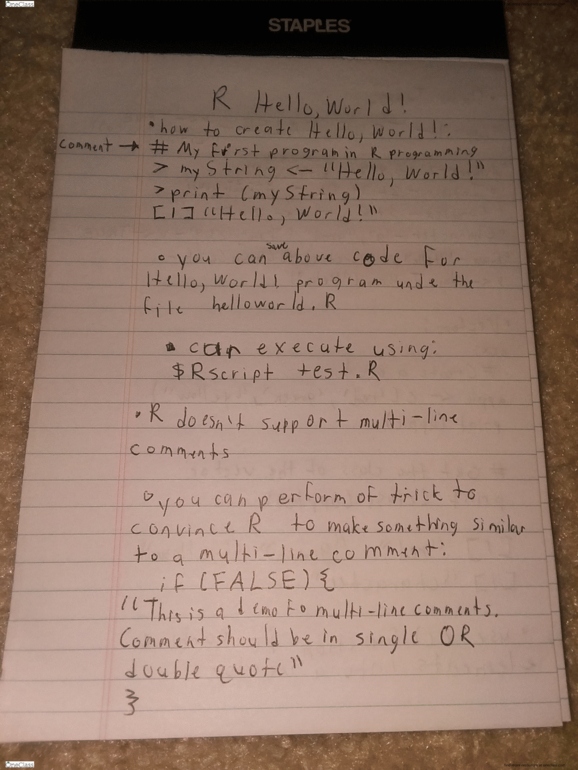 OneClass
STAPLES
R Hello, World!
•how to create Hello, World!:
comment → # My first program in R programming
> myString <- "Hello, World!"
> print (myString)
[1] "Hello, World!"
◦ you can save above code for
Hello, World! program unde the
file helloworld.R
▪ can execute using:
$Rscript test.R
•R doesn't support multi-line
comments
◦you can perform of trick to
convince R to make something similar
to a multi-line comment:
if (FALSE) {
"This is a demo fo multi-line comments.
Comment should be in single OR
double quote"
}
OneClass